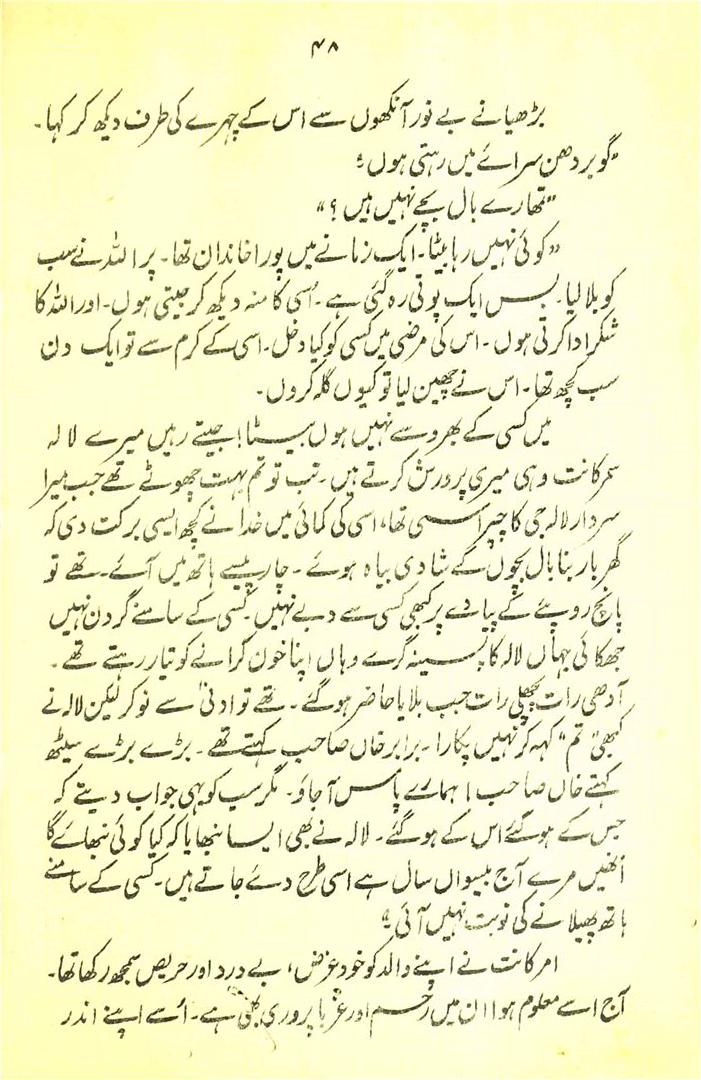 ۴۸
بڑھیا نے بے نور آنکھوں سے اس کے چہرے کی طرف دیکھ کر کہا۔
"گوبردھن سرائے میں رہتی ہوں"
"تمھارے بال بچے نہیں ہیں؟"
"کوئی نہیں رہا بیٹا۔ ایک زمانے میں پورا خاندان تھا۔ پر اللہ نے سب
کو بلا لیا۔ بس ایک پوتی رہ گئی ہے۔ اُسی کا منہ دیکھ کر جیتی ہوں۔ اور اللہ کا
شکر ادا کرتی ہوں۔ اس کی مرضی میں کسی کو کیا دخل۔ اسی کے کرم سے تو ایک دن
سب کچھ تھا۔ اس نے چھین لیا تو کیوں گلہ کروں۔
میں کسی کے بھروسے نہیں ہوں بیٹا! جیتے رہیں میرے لالہ
سمرکانت وہی میری پرورش کرتے ہیں۔ تب تو تم بہت چھوٹے تھے جب میرا
سردار لالہ جی کا چپراسی تھا، اسی کی کمائی میں خدا نے کچھ ایسی برکت دی کہ
گھر بار بنا بال بچوں کے شادی بیاہ ہوئے۔ چار پیسے ہاتھ میں آئے۔ تھے تو
پانچ روپئے کے پیادے پر کبھی کسی سے دبے نہیں۔ کسی کے سامنے گردن نہیں
جھکائی جہاں لالہ کا پسینہ گرے وہاں اپنا خون گرانے کو تیار رہتے تھے۔
آدھی رات پچھلی رات جب بلایا حاضر ہو گئے۔ تھے تو ادنیٰ سے نوکر لیکن لالہ نے
کبھی "تم" کہہ کر نہیں پکارا۔ برابر خاں صاحب کہتے تھے۔ بڑے بڑے سیٹھ
کہتے خاں صاحب! ہمارے پاس آجاؤ۔ مگر سب کو یہی جواب دیتے کہ
جس کے ہو گئے اس کے ہو گئے۔ لالہ نے بھی ایسا نبھایا کہ کیا کوئی نبھائے گا
اُنھیں مرے آج بیسواں سال ہے اسی طرح دئے جاتے ہیں۔ کسی کے سامنے
ہاتھ پھیلانے کی نوبت نہیں آئی"
امرکانت نے اپنے والد کو خود غرض، بے درد اور حریص سمجھ رکھا تھا۔
آج اسے معلوم ہوا ان میں رحم اور غربا پروری بھی ہے۔ اُسے اپنے اندر